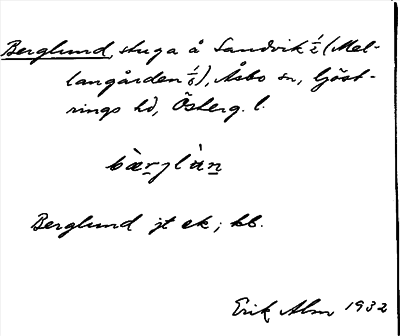 Berglund, stuga å Sandvik 1/2 (Mel-
langården 1/6), Åsbo sn, Göst-
rings hd, Österg. l.
bæ̀rjlùn
Berglund jt ek; kb.
Erik Alm 1932